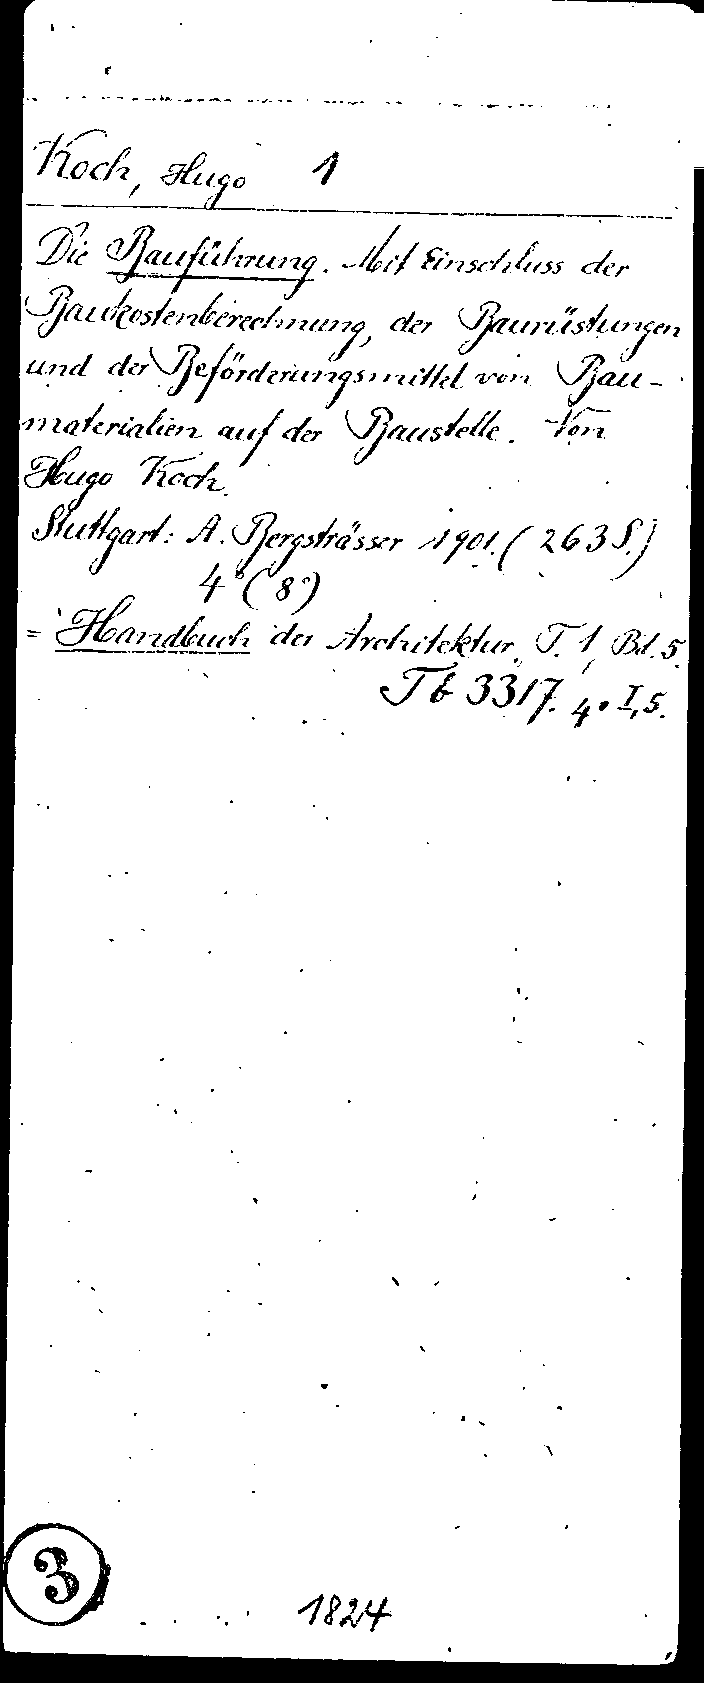 Koch, Hugo 1
Die Bauführung. Mit Einschluss der
Baukostenberechnung, der Baurüstungen
und der Beförderungsmittel von Bau-
materialien auf der Baustelle. Von
Hugo Koch.
Stuttgart: A. Bergsträsser 1901. (263 S.)
4° (8°)
= Handbuch der Architektur, T. 1, Bd. 5.
Tb 3317. 4° I,5.
3
1824